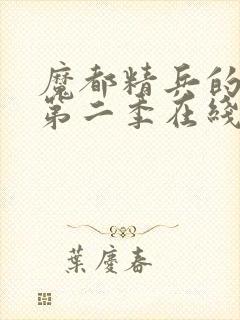 魔都精兵的
第二季在綫
葉慶春